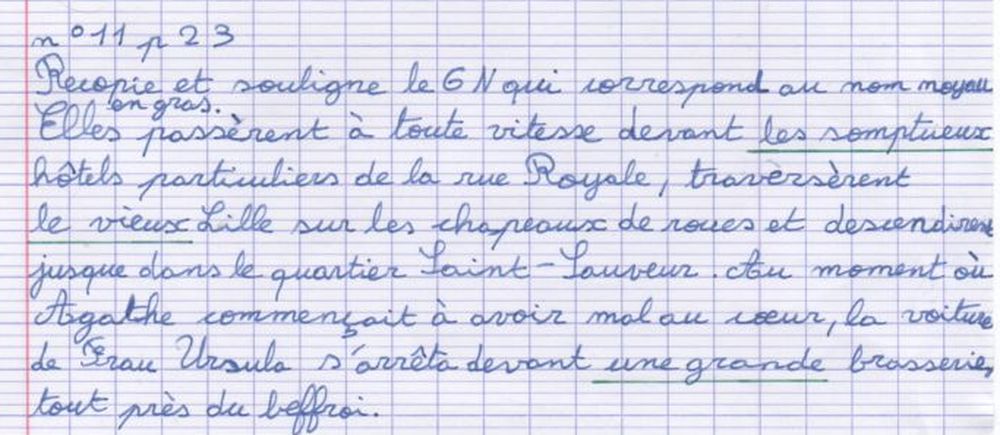 n° 11 p 23
Recopie et souligne le GN qui correspond au nom noyau
en gras.
Elles passèrent à toute vitesse devant les somptueux
hôtels particuliers de la rue Royale, traversèrent
le vieux Lille sur les chapeaux de roues et descendirent
jusque dans le quartier Saint-Sauveur. Au moment où
Agathe commençait à avoir mal au cœur, la voiture
de Frau Ursula s'arrêta devant une grande brasserie,
tout près du beffroi.